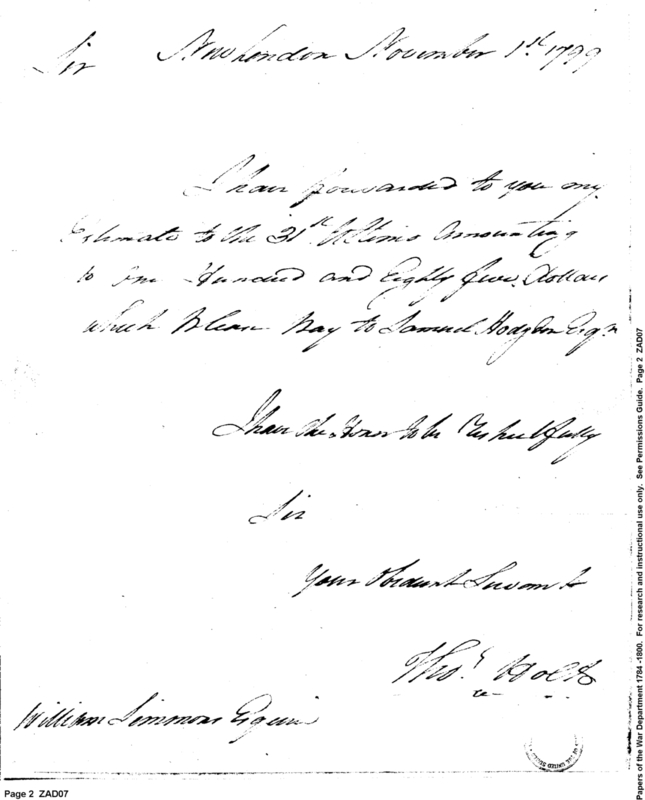 Sir New London November 1st 1799
I have forwarded to you my
Estimate to the 31st Ultimo Amounting
to One Hundred and Eighty five Dollars
which Please Pay to Samuel Hodgdon Esqr
I have the Honor to be Respectfully
Sir
Your Obedient Servant
Thos Holt
William Simmons Esquire
Page 2 ZAD07
Papers of the War Department 1784 -1800. For research and instructional use only. See Permissions Guide. Page 2 ZAD07